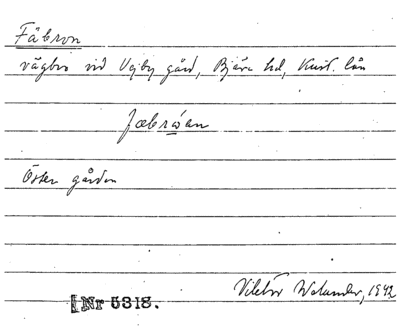 Fäbron
vägbro vid Vejby gård, Bjäre hd, Krist. län
Fæbrøan
Öster gården
Viktor Wolander, 1942
Nr 5318.